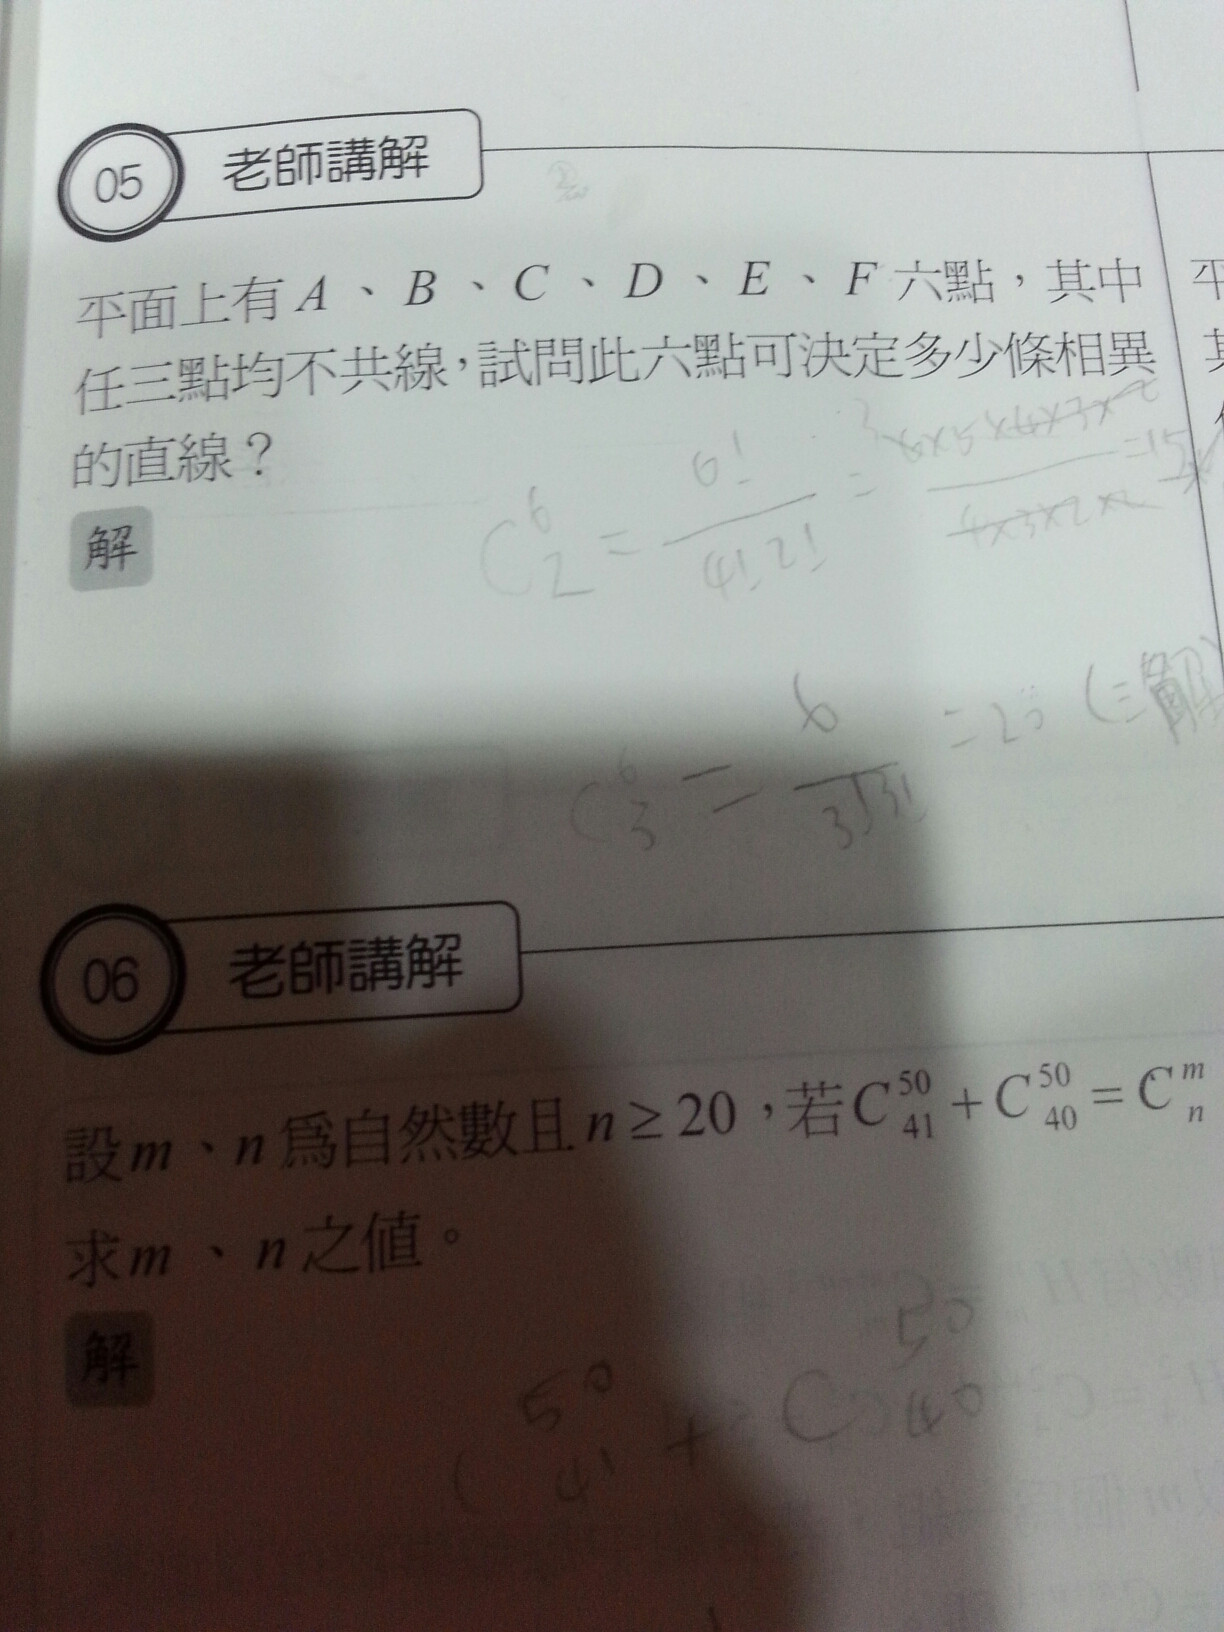 05 老師講解
平面上有 A、B、C、D、E、F 六點，其中
任三點均不共線，試問此六點可決定多少條相異
的直線？
解
C⁶₂ = 6!/4!2! = 6×5×4×3×2/4×3×2×2 = 15
C⁶₃ = 6/3!3! =
06 老師講解
設 m、n 為自然數且 n ≥ 20，若 C⁵⁰₄₁ + C⁵⁰₄₀ = Cᵐₙ
求 m、n 之值。
解
C⁵⁰₄₁ + C⁵⁰₄₀